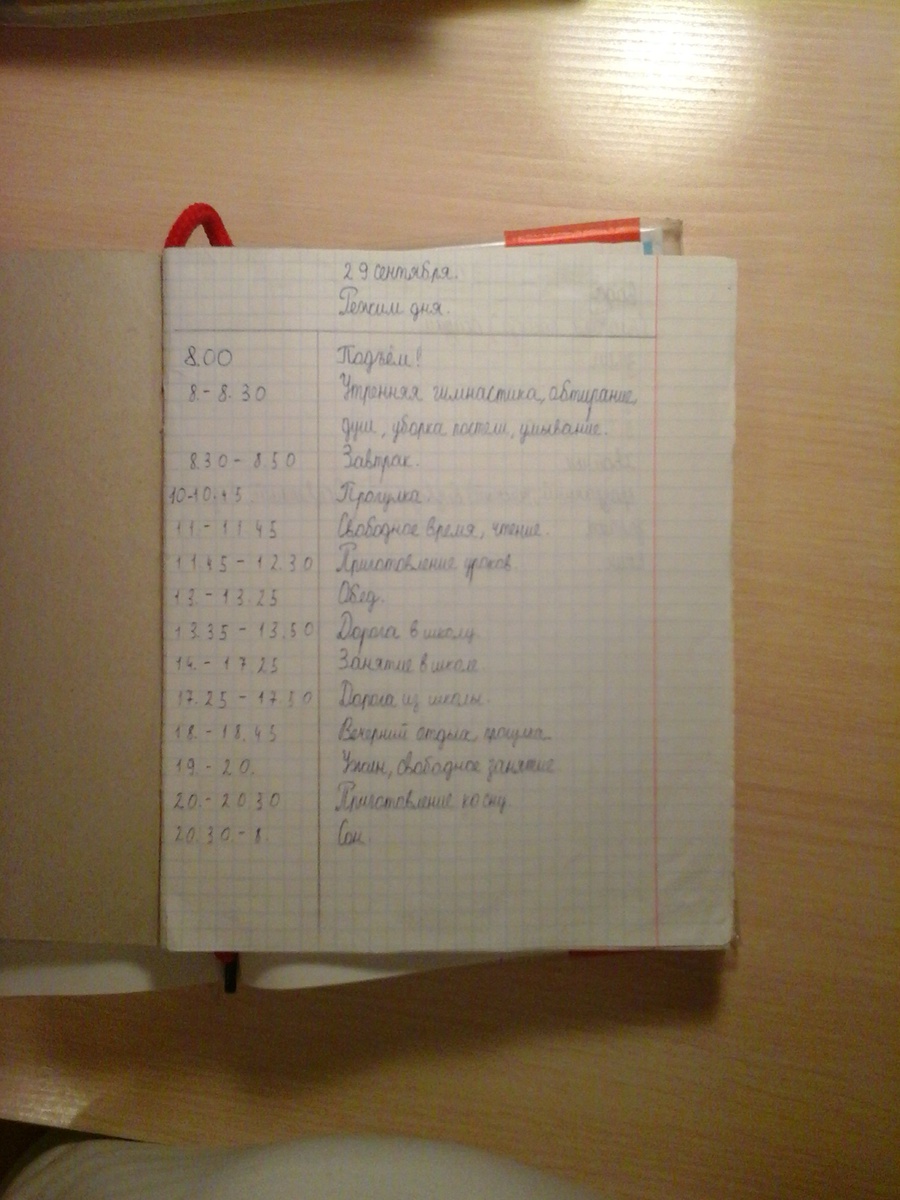 29 сентября.
Режим дня.
8.00 Подъём!
8.- 8.30 Утренняя гимнастика, обтирание,
душ, уборка постели, умывание.
8.30 - 8.50 Завтрак.
10-10.45 Прогулка
11.- 11.45 Свободное время, чтение.
11.45 - 12.30 Приготовление уроков.
13.- 13.25 Обед.
13.35 - 13.50 Дорога в школу.
14.- 17.25 Занятие в школе
17.25 - 17.50 Дорога из школы.
18.- 18.45 Вечерний отдых, прогулка.
19.- 20. Ужин, свободное занятие
20.- 20.30 Приготовление ко сну
20.30 - 8. Сон.